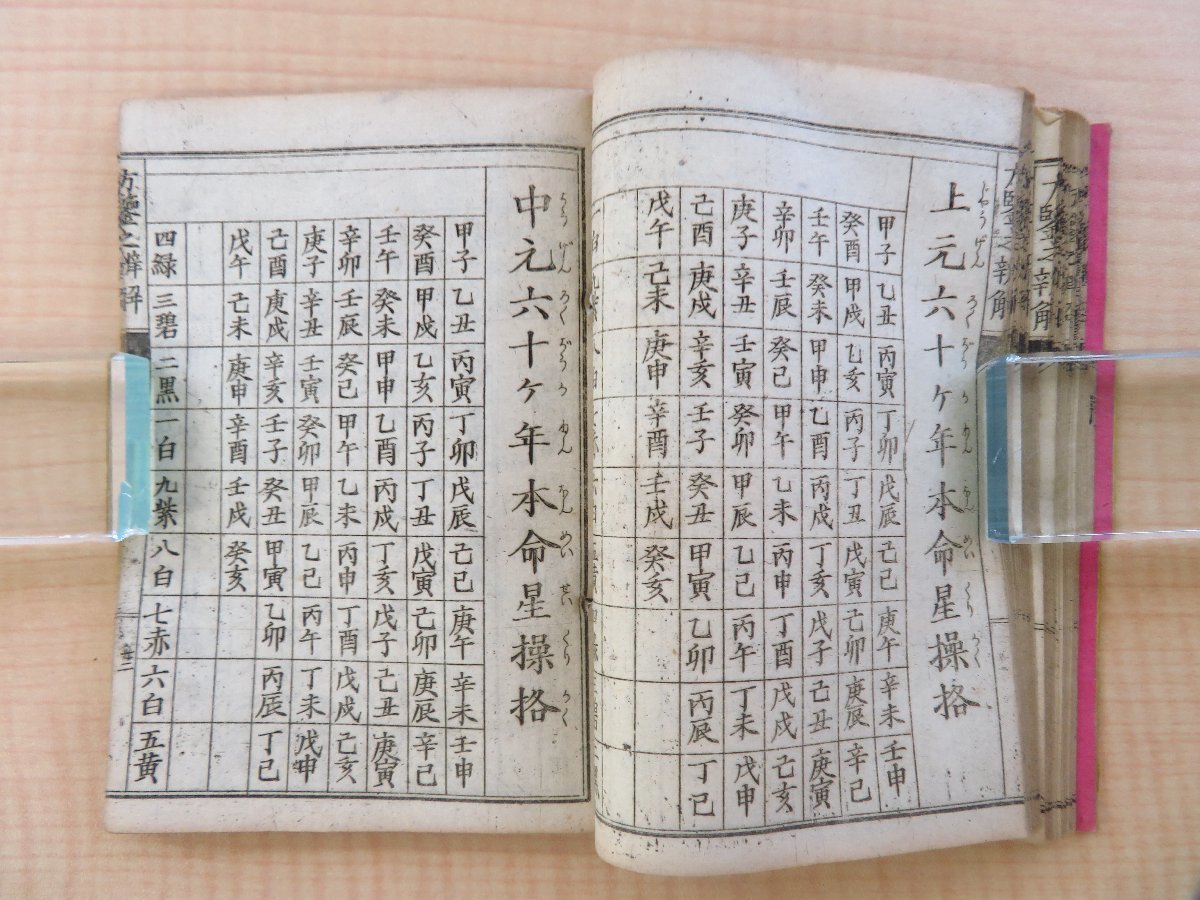 上元六十ヶ年本命星操格
甲子 乙丑 丙寅 丁卯 戊辰 己巳 庚午 辛未 壬申
癸酉 甲戌 乙亥 丙子 丁丑 戊寅 己卯 庚辰 辛巳
壬午 癸未 甲申 乙酉 丙戌 丁亥 戊子 己丑 庚寅
辛卯 壬辰 癸巳 甲午 乙未 丙申 丁酉 戊戌 己亥
庚子 辛丑 壬寅 癸卯 甲辰 乙巳 丙午 丁未 戊申
己酉 庚戌 辛亥 壬子 癸丑 甲寅 乙卯 丙辰 丁巳
戊午 己未 庚申 辛酉 壬戌 癸亥
中元六十ヶ年本命星操格
甲子 乙丑 丙寅 丁卯 戊辰 己巳 庚午 辛未 壬申
癸酉 甲戌 乙亥 丙子 丁丑 戊寅 己卯 庚辰 辛巳
壬午 癸未 甲申 乙酉 丙戌 丁亥 戊子 己丑 庚寅
辛卯 壬辰 癸巳 甲午 乙未 丙申 丁酉 戊戌 己亥
庚子 辛丑 壬寅 癸卯 甲辰 乙巳 丙午 丁未 戊申
己酉 庚戌 辛亥 壬子 癸丑 甲寅 乙卯 丙辰 丁巳
戊午 己未 庚申 辛酉 壬戌 癸亥
四緑 三碧 二黒 一白 九紫 八白 七赤 六白 五黄